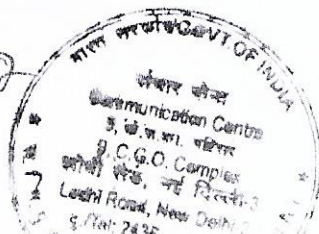 भारत सरकार GOVT. OF INDIA
संचार केन्द्र
Communication Centre
5, के.का. परिसर
5, C.G.O. Complex
लोधी रोड, नई दिल्ली-3
Lodhi Road, New Delhi-3
Tel: 2436